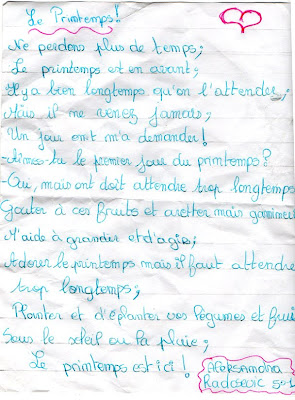 Le Printemps!
Ne perdons plus de temps;
Le printemps est en avant;
Il y a bien longtemps qu'on l'attender;
Mais il ne venez jamais;
Un jour ont m'a demander!
-Aimes-tu le premier jour du printemps?
-Oui, mais ont doit attendre trop longtemps
Gouter à ces fruits et
M'aide à grandir et d'agir;
Adorer le printemps mais il faut attendre
trop longtemps;
Planter et d'éplanter vos légumes et frui
Sous le soleil ou la pluie;
Le printemps est ici!
Aleksandra
Radosevic 5e1